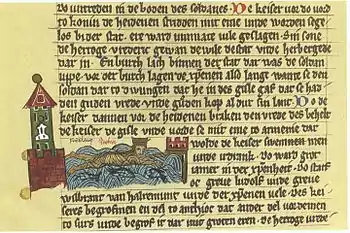 vo unreden in de boden des soldanes. De keiser vor do vord
to konin de heidenen striden mit eme unde worden sege
los bi der stat. er ward unmazt vile geslagen. Sin sone
de herzoge vrederic gewan de wile de stat unde herbergede
dar in. En burch lach binnen der stat dar was de soldan
uppe. vor der burch lagen de xpenen also lange want se den
soldan dar to dwungen dat he in des gisle gaf dat se had
den guden vrede unde guden kop al dur sin lant. Do de
keiser dannen vor de heidenen braken den vrede des behelt
de keiser de gisle unde vorde se mit eme to armenie dar
wolde de keiser swemmen
unde irdrank. Do ward groz
iamer in der xpenheit. Do starf
oc greve ludolf unde greve
wilbrant van halremunt unde der xpenen vele. des kei
seres begrofmen en del to anthioc dat ander del vordemen
to surs unde begrof it dar mit groten eren. de herzoge vrede